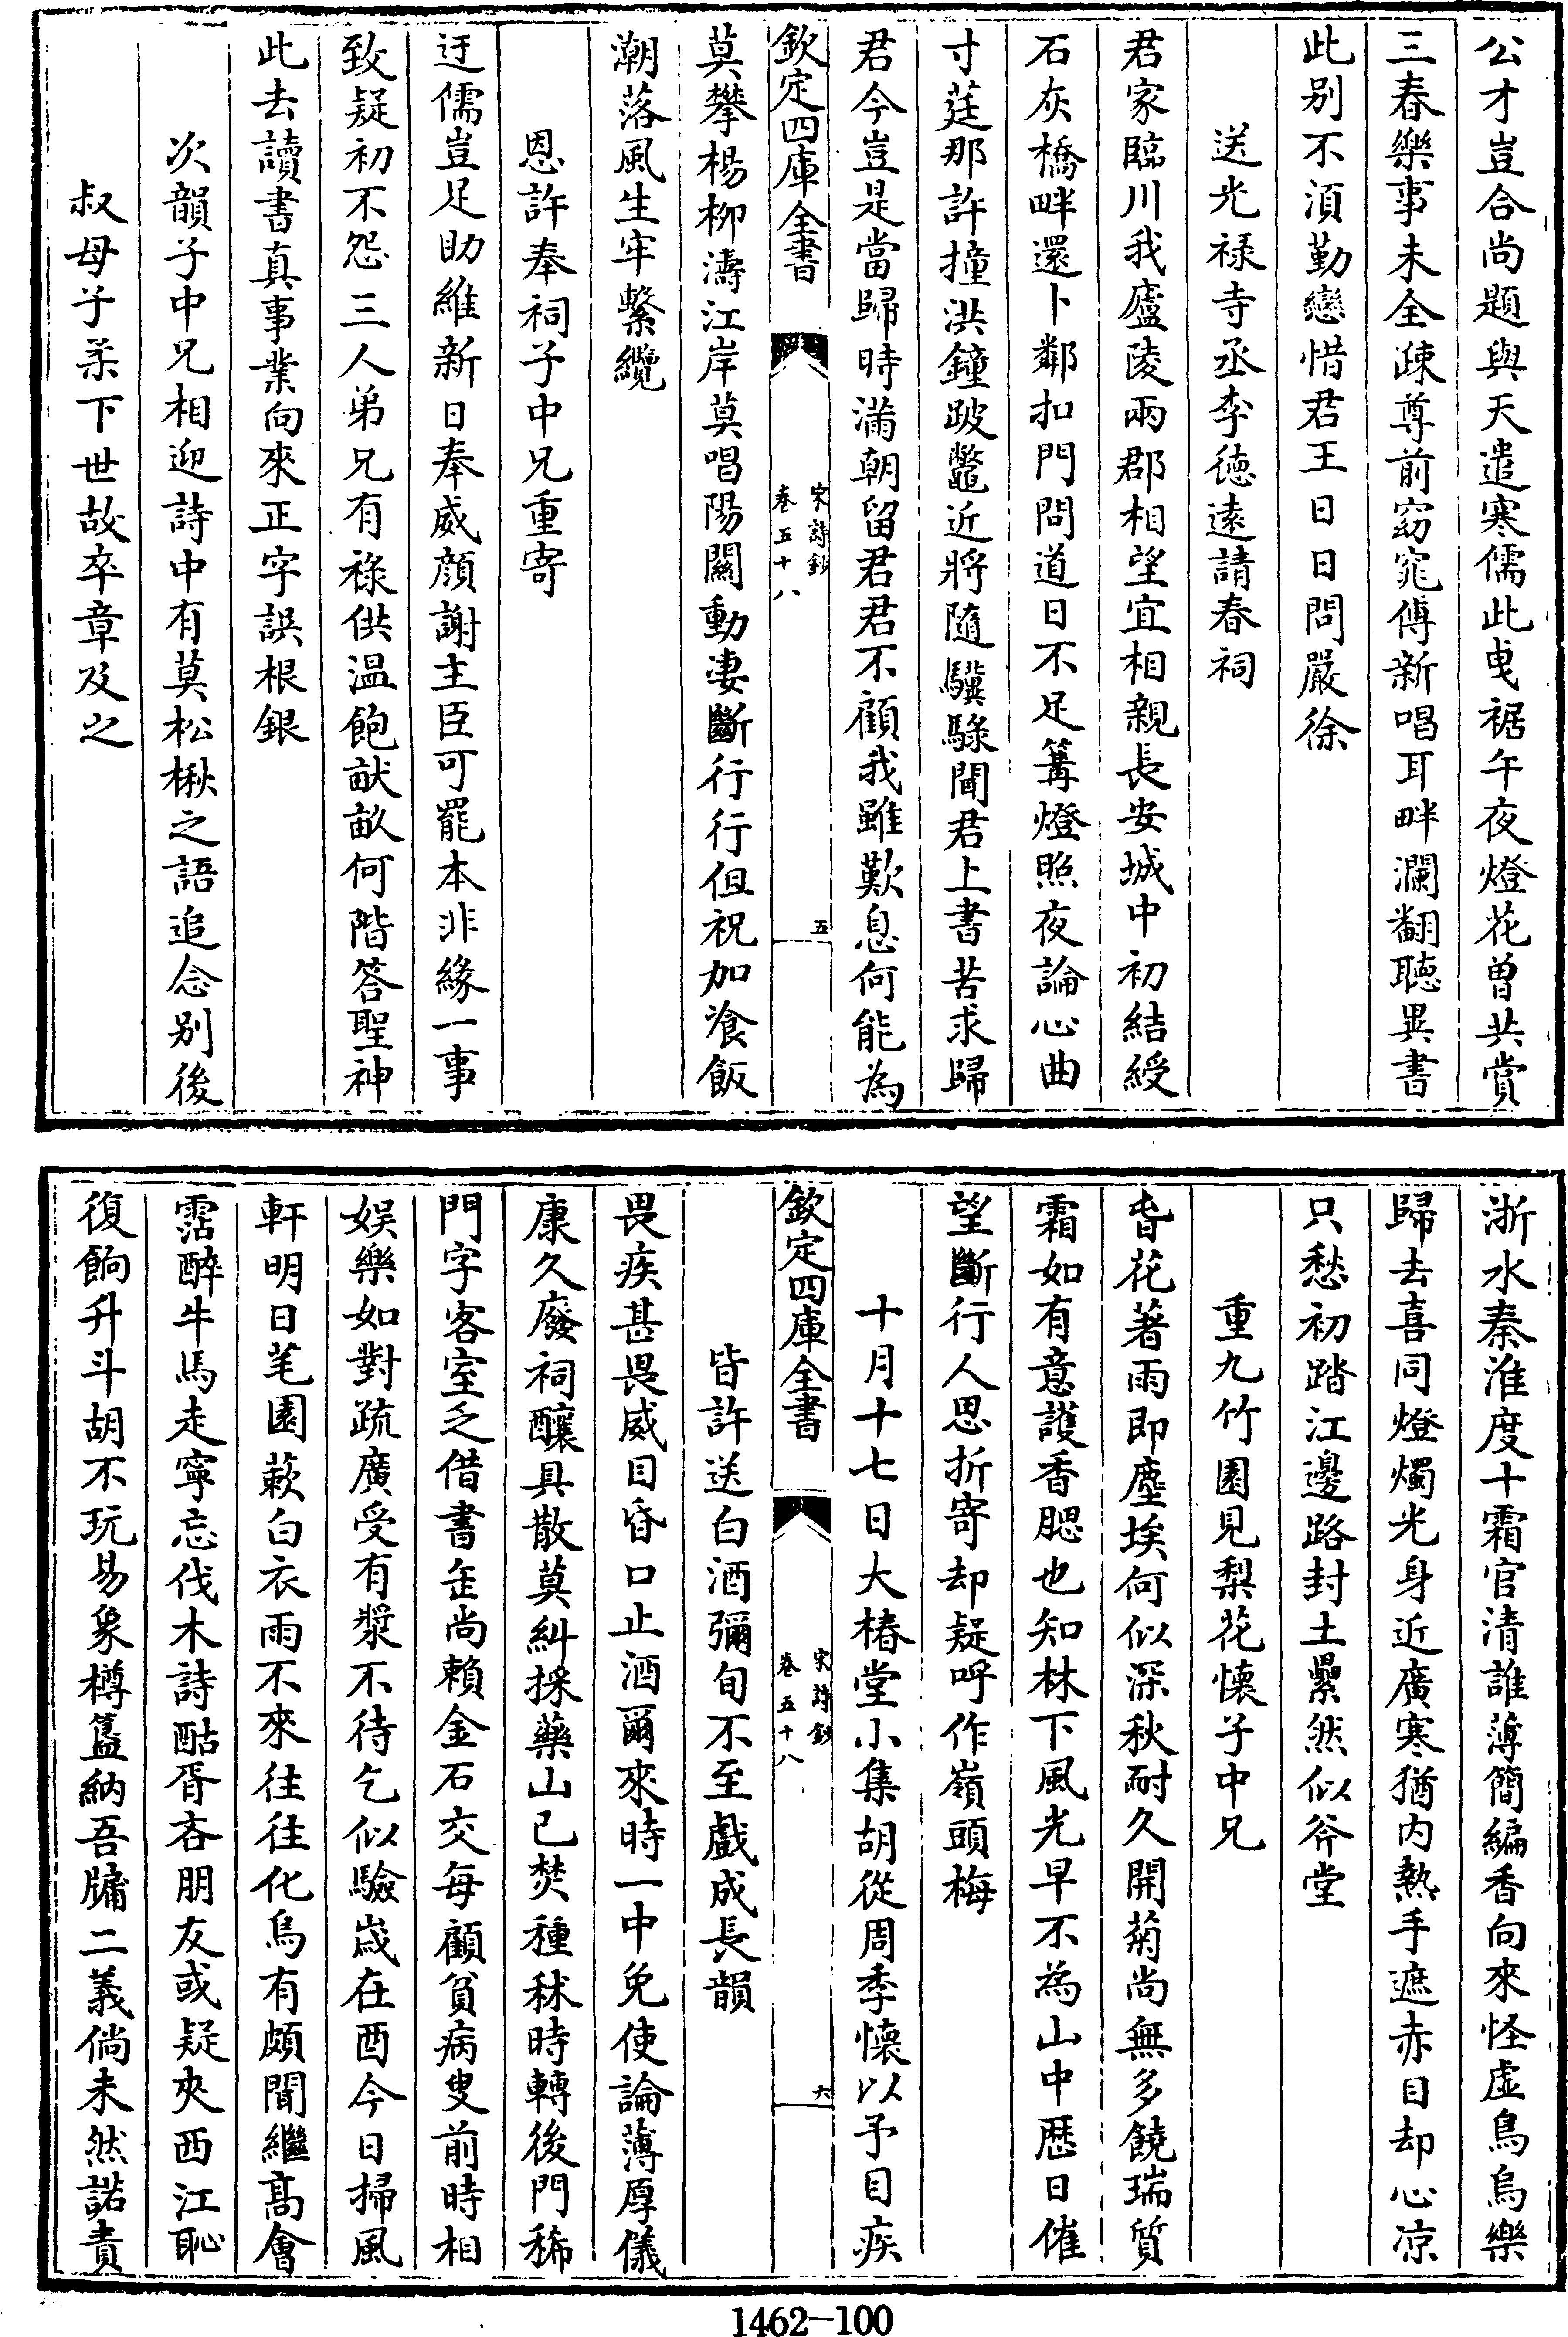 公才豈合尚題輿天遣寒儒此曵裾午夜燈花曾共賞
三春樂事未全疎尊前窈窕傅新唱耳畔瀾翻聽異書
此别不須勤戀惜君王日日問嚴徐
送光禄寺丞李徳遠請春祠
君家臨川我廬陵兩郡相望宜相親長安城中初結綬
石灰橋畔還卜鄰扣門問道日不足篝燈照夜論心曲
寸莛那許撞洪鐘跛鼈近將隨驥騄聞君上書苦求歸
君今豈是當歸時滿朝留君君不顧我雖歎息何能為
欽定四庫全書
宋詩鈔
卷五十八
五
莫攀楊柳濤江岸莫唱陽關動凄斷行行但祝加飡飯
潮落風生牢繫纜
恩許奉祠子中兄重寄
迂儒豈足助維新日奉威顔謝主臣可罷本非緣一事
致疑初不怨三人弟兄有祿供温飽猷畝何階答聖神
此去讀書真事業向來正字誤根銀
次韻子中兄相迎詩中有莫松楸之語追念别後
叔母子柔下世故卒章及之
浙水秦淮度十霜官清誰薄簡編香向來怪虚鳥烏樂
歸去喜同燈燭光身近廣寒猶内熱手遮赤日却心凉
只愁初踏江邊路封土纍然似斧堂
重九竹園見梨花懐子中兄
春花著雨即塵埃何似深秋耐久開菊尚無多饒瑞質
霜如有意護香腮也知林下風光早不為山中歴日催
望斷行人思折寄却疑呼作嶺頭梅
十月十七日大椿堂小集胡從周季懐以予目疾
欽定四庫全書
宋詩鈔
卷五十八
六
皆許送白酒彌旬不至戲成長韻
畏疾甚畏威目昏口止酒爾來時一中免使論薄厚儀
康久廢祠釀具散莫糾採藥山已焚種秫時轉後門稀
門字客室乏借書缶尚賴金石交每顧貧病叟前時相
娱樂如對疏廣受有漿不待乞似驗歲在酉今日掃風
軒明日芼園蔌白衣雨不來往往化烏有頗聞繼髙會
霑醉牛馬走寧忘伐木詩酤胥吝朋友或疑夾西江恥
復餉升斗胡不玩易象樽簋納吾牖二義倘未然諾責
1462-100